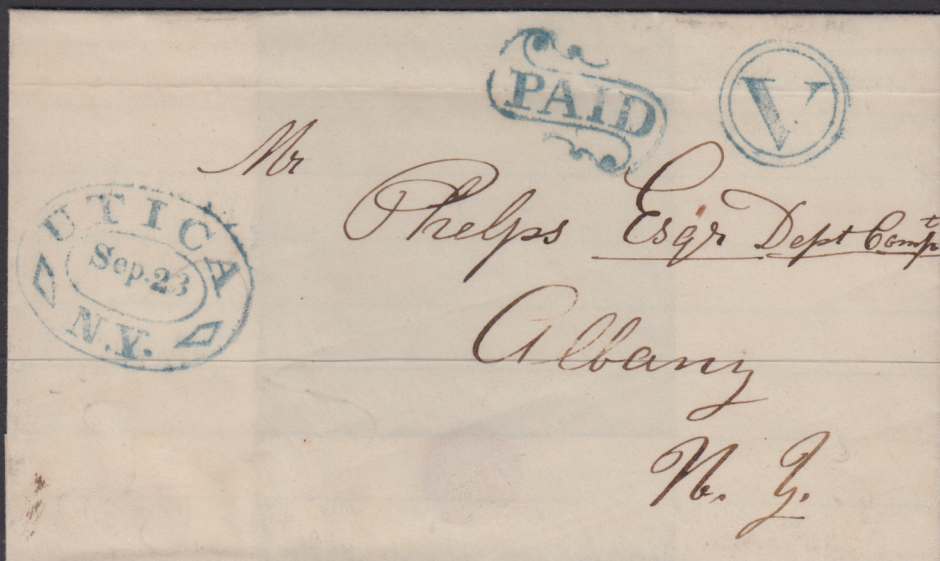 PAID
V
UTICA
Sep. 23
N.Y.
Mr
Phelps Esqr Dept Compt
Albany
N. Y.